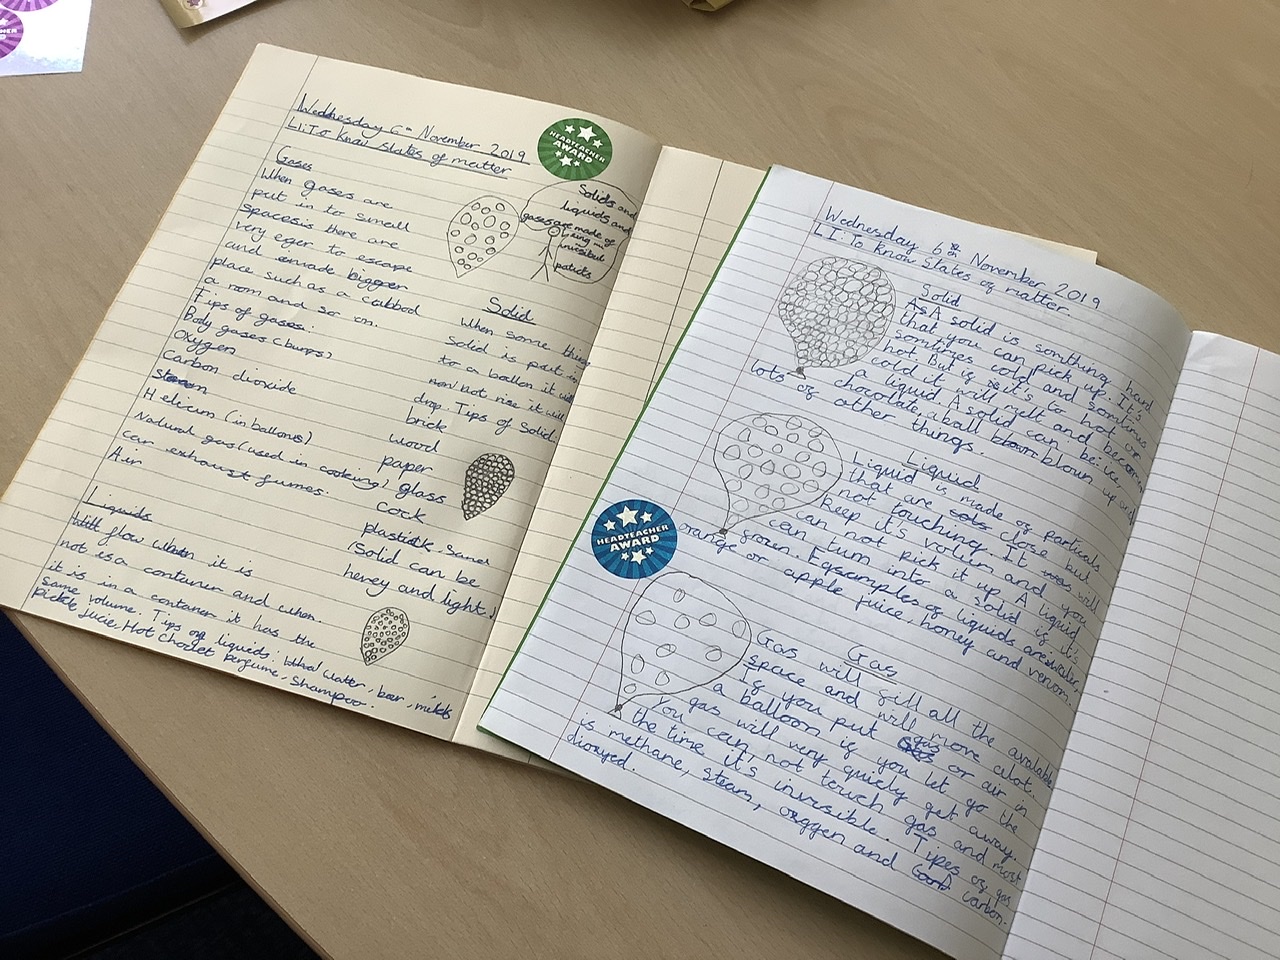 Wednesday 6th November 2019
L.I: To know states of matter
HEADTEACHER
AWARD
Gases
When gases are
put in to small
spaces there are
very eger to escape
and made bigger
place such as a cubbod
a room and so on.
Tips of gases:
Body gases (burps)
Oxygen
Carbon dioxide
Helicum (in ballons)
Natural gas (used in cooking)
car exhaust fumes.
Air
Liquids
Will flow when it is
not is a contaner and when
it is in a contaner it has the
same volume. Tips of liquids: Watter, beer, milk
pickle Jucie, Hot Choclet Perfume, Shampoo.
Solids and
liquids and
gases are made of
tiny
invisibul
paticls
Solid
When some thing
solid is put in
to a ballon it will
not rise it will
drop. Tips of Solid:
brick
wood
paper
glass
cock
plastick, sand
Solid can be
hevey and light.
Wednesday 6th November 2019
L.I: To know states of matter
Solid
A solid is somthing hard
that you can pick up. It's
somtimes cold and somtimes
hot. But is it's to hot or
cold it will melt and become
a liquid. A solid can be: ice,
chocolate, a ball blown up and
lots of other things.
Liquid
Liquid is made of particals
that are close but
not touching. It will
keep it's volum and you
can not pick it up. A liquid
can turn into a solid if it's
frozen. Egsamples of liquids are: water,
orange or apple juice, honey and venom.
HEADTEACHER
AWARD
Gas
Gas will fill all the avalable
space and will move alot.
If you put gas or air in
a balloon if you let go the
gas will very quiely get away.
You can not touch gas and most
the time it's invisible. Tipes of gas
is methane, steam, oxggen and carbon-
dioxyed.